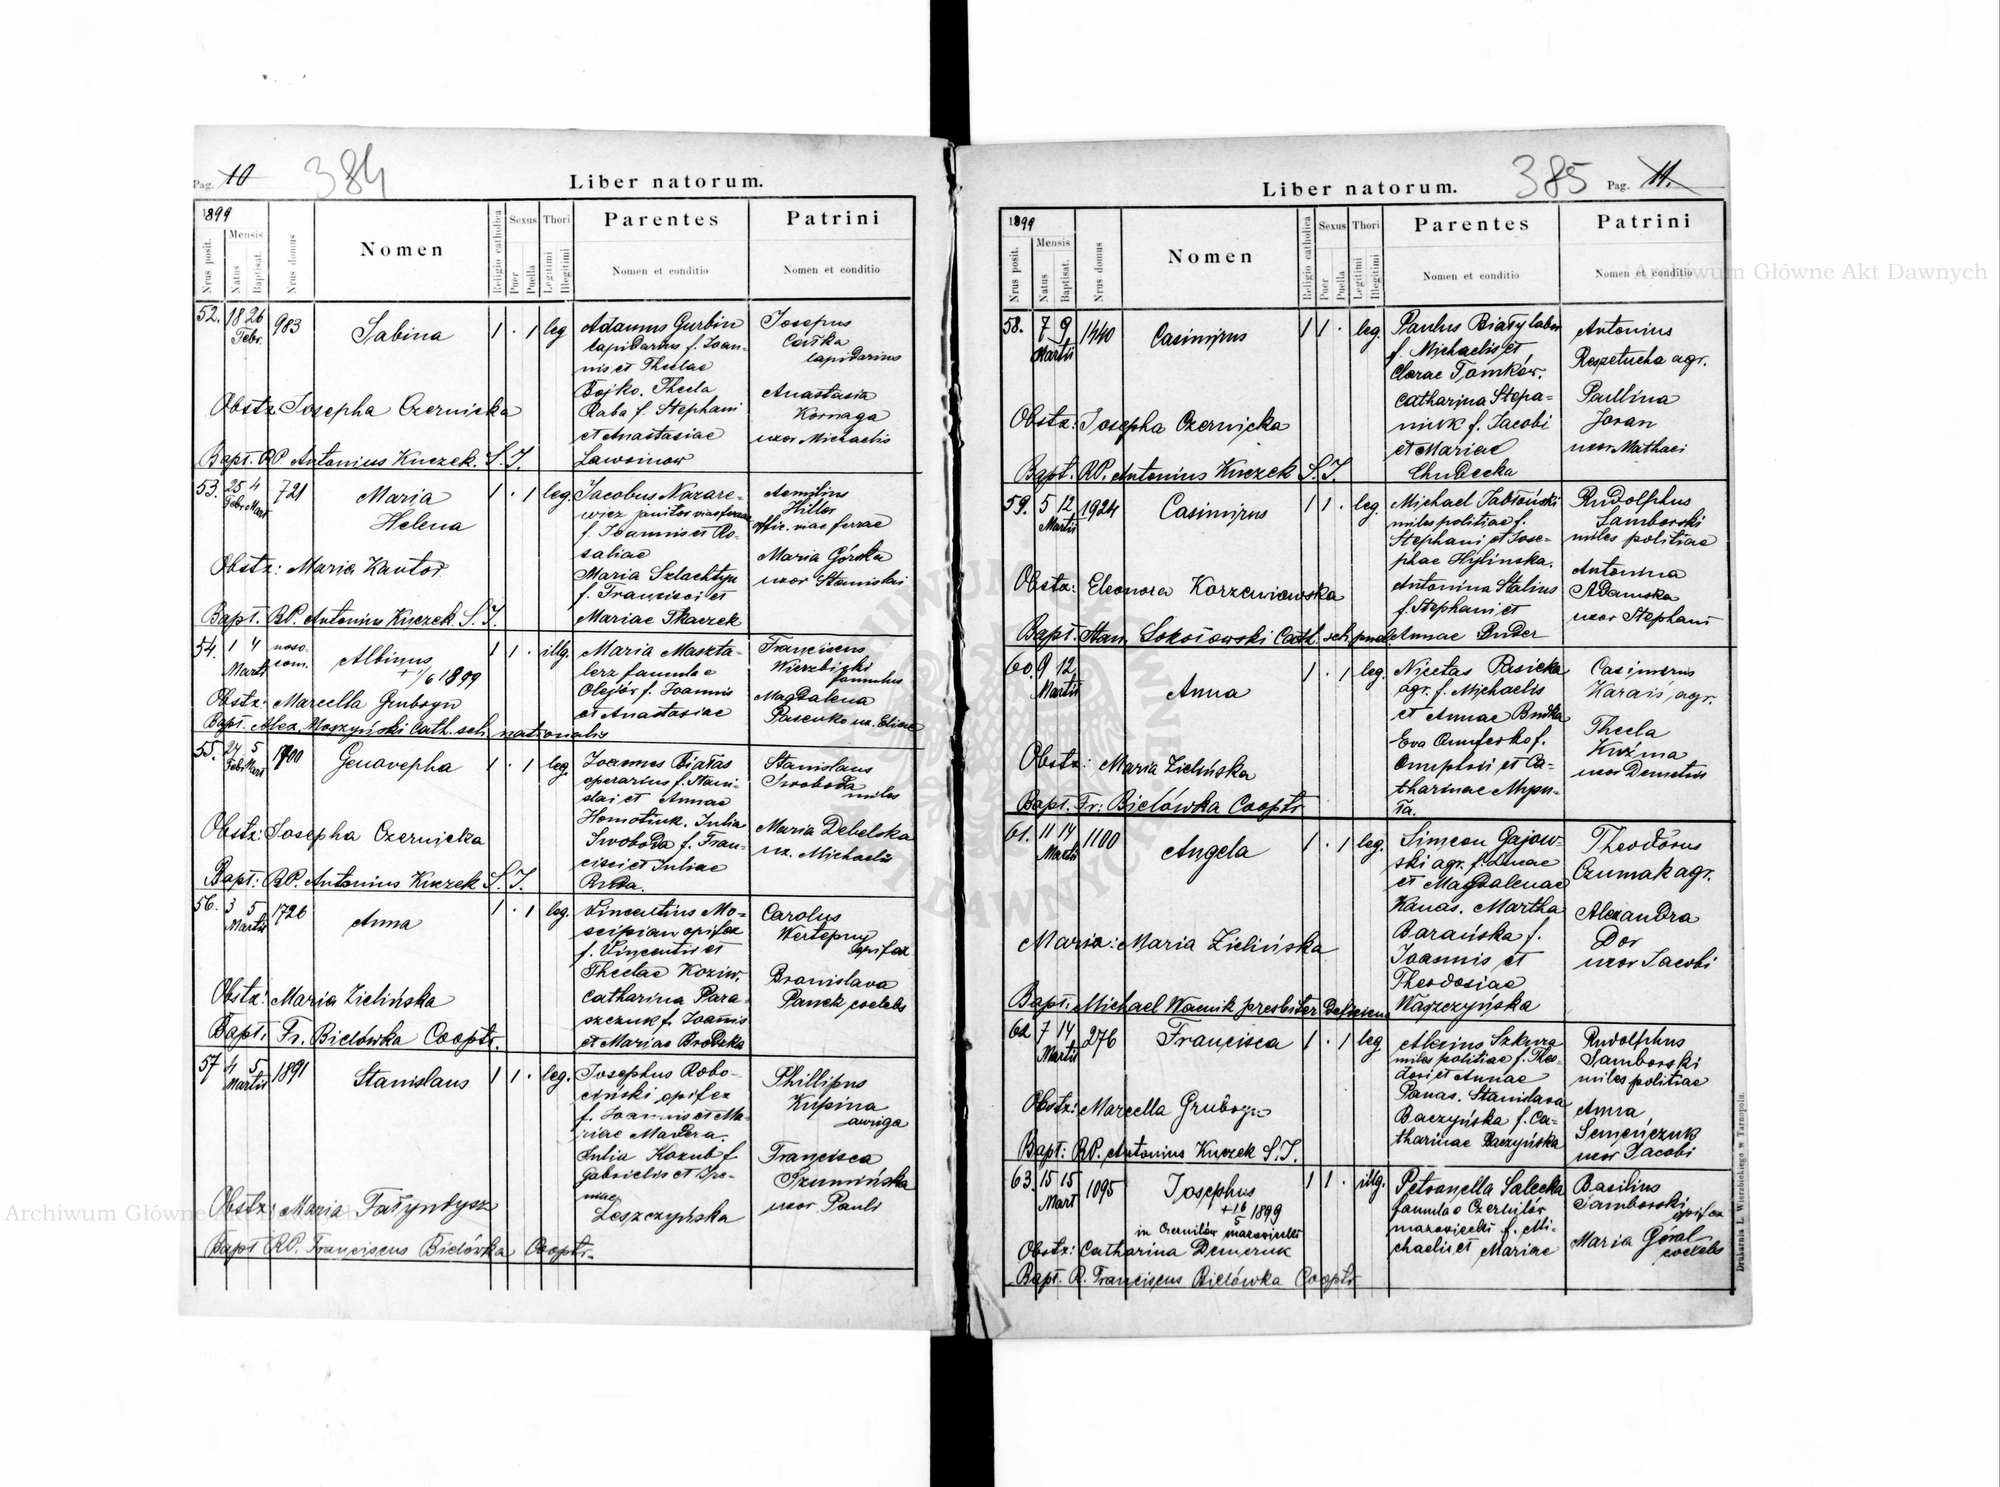 Pag. 10 384
Liber natorum.
1899
Nrus posit.
Mensis
Natus
Baptisat.
Nrus domus
Nomen
Religio catholica
Sexus
Puer
Puella
Thori
Legitimi
Illegitimi
Parentes
Nomen et conditio
Patrini
Nomen et conditio
52. 18 26 Febr. 983 Sabina 1 . 1 leg
Adamus Gurbin
lapidarius f. Joan-
nis et Theclae
Bojko. Thecla
Raba f. Stephani
et Anastasiae
Josepus
lapidarius
Anastasia
Kornaga
uxor Michaelis
Obstz. Josepha Czernicka
Bapt. RP. Antonius Kuczek. S. J.
53. 25 Febr 4 Mart 721 Maria 1 . 1 leg.
Helena
Jacobus Nazare-
wicz janitor viae ferrae
f. Joannis et Ro-
saliae
Maria Szlachtyn
f. Francisci et
Mariae Tkaczek
Aemilius
offic. viae ferrae
Maria Górska
uxor Stanislai
Obstz: Maria Kantor
Bapt. RP. Antonius Kuczek. S. J.
54. 1 4 Martii noso. com. Albinus 1 1 . illg.
+ 1/6 1899
Maria Maszta-
lerz famula e
Olejów f. Joannis
et Anastasiae
Franciscus
Wierzbicki
famulus
Magdalena
Pasenko ux. Eliae
Obstz: Marcella Grubogn
Bapt. Alex. Moszyński Cath. sch. nationalis
55. 27 Febr 5 Mart 1900 Genovepha 1 . 1 leg
Joannes Białas
operarius f. Stani-
slai et Annae
Homotiuk. Julia
Swoboda f. Fran-
cisci et Juliae
Ruda.
Stanislaus
Swoboda
miles
Maria Debelska
ux. Michaelis
Obstz: Josepha Czernicka
Bapt: RP. Antonius Kuczek S. J.
56. 3 5 Martii 1726 Anna 1 . 1 leg.
Vincentius Mo-
scipian opifex
f. Vincentii et
Theclae Koziw.
Catharina Para-
szczuk f. Joannis
et Mariae Brodzka
Carolus
Wertepny
opifex
Bronislava
Panek coelebs
Obstz: Maria Zielińska
Bapt: Fr. Bielówka Coopts.
57 4 5 Martii 1891 Stanislaus 1 1 . leg.
Josephus Robo-
ciński opifex
f. Joannis et Ma-
riae Madera.
Julia Kozub f
Gabrielis et Ire-
niae
Leszczyńska
Phillipus
Kupina
auriga
Francisca
Szumińska
uxor Pauli
Obstz: Maria Fałyndysz
Bapt RP. Franciscus Bielówka Coopts.
Liber natorum. 385 Pag. 11.
1899
Nrus posit.
Mensis
Natus
Baptisat.
Nrus domus
Nomen
Religio catholica
Sexus
Puer
Puella
Thori
Legitimi
Illegitimi
Parentes
Nomen et conditio
Patrini
Nomen et conditio
58. 7 9 Martii 1440 Casimirus 1 1 . leg.
Paulus Białytaber
f. Michaelis et
Clarae Tomków.
Catharina Stepa-
niuk f. Jacobi
et Mariae
Chudecka
Antonius
Rezpetucha agr.
Paullina
Joran
uxor Mathaei
Obstz: Josepha Czernicka
Bapt. RP. Antonius Kuczek S. J.
59. 5 12 Martii 1924 Casimirus 1 1 . leg.
Michael Jabłoński
miles politiae f.
Stephani et Jose-
phae Hylinska.
Antonina Stalius
f. Stephani et
Annae Buder
Rudolphus
Samborski
miles politiae
Antonina
Adamska
uxor Stephani
Obstz: Eleonora Korzeniowska
Bapt. Stan. Sokołowski Cath. sch. puel.
60. 9 12 Martii Anna 1 . 1 leg.
Nicetas Pasieka
agr. f. Michaelis
et Annae Budka
Eva Onuferko f.
Onuphrii et Ca-
tharinae Mypu-
ła.
Casimirus
Karaś agr.
Thecla
Kuźma
uxor Demetrii
Obstz: Maria Zielińska
Bapt. Fr: Bielówka Coopts
61. 11 14 Martii 1100 Angela 1 . 1 leg.
Simeon Gajow-
ski agr. f. Lucae
et Magdalenae
Kanas. Martha
Barańska f.
Joannis et
Theodosiae
Waszczyńska
Theodorus
Czumak agr.
Alexandra
Dor
uxor Jacobi
Maria: Maria Zielińska
Bapt: Michael Wacnik presbiter deficiens
62 7 14 Martii 276 Francisca 1 . 1 leg
Alexius Szkura
miles politiae f. Theo-
dori et Annae
Panas. Stanislava
Baczyńska f. Ca-
tharinae Baczyńska
Rudolphus
Samborski
miles politiae
Anna
Semeńczuk
uxor Jacobi
Obstz: Marcella Grubogn
Bapt: RP. Antonius Kuczek S. J.
63. 15 15 Mart 1095 Josephus 1 1 . illg.
+ 16/5 1899
in Czernilów mazowiecki
Petronella Salecka
famula e Czernilów
mazowiecki f. Mi-
chaelis et Mariae
Basilius
Samborski
opifex
Maria Góral
coelebs
Obstz: Catharina Demczuk
Bapt. R. Franciscus Bielówka Coopts
Drukarnia L. Wierzbickiego w Tarnopolu.
Archiwum Główne Akt Dawnych
Archiwum Główne Akt Dawnych